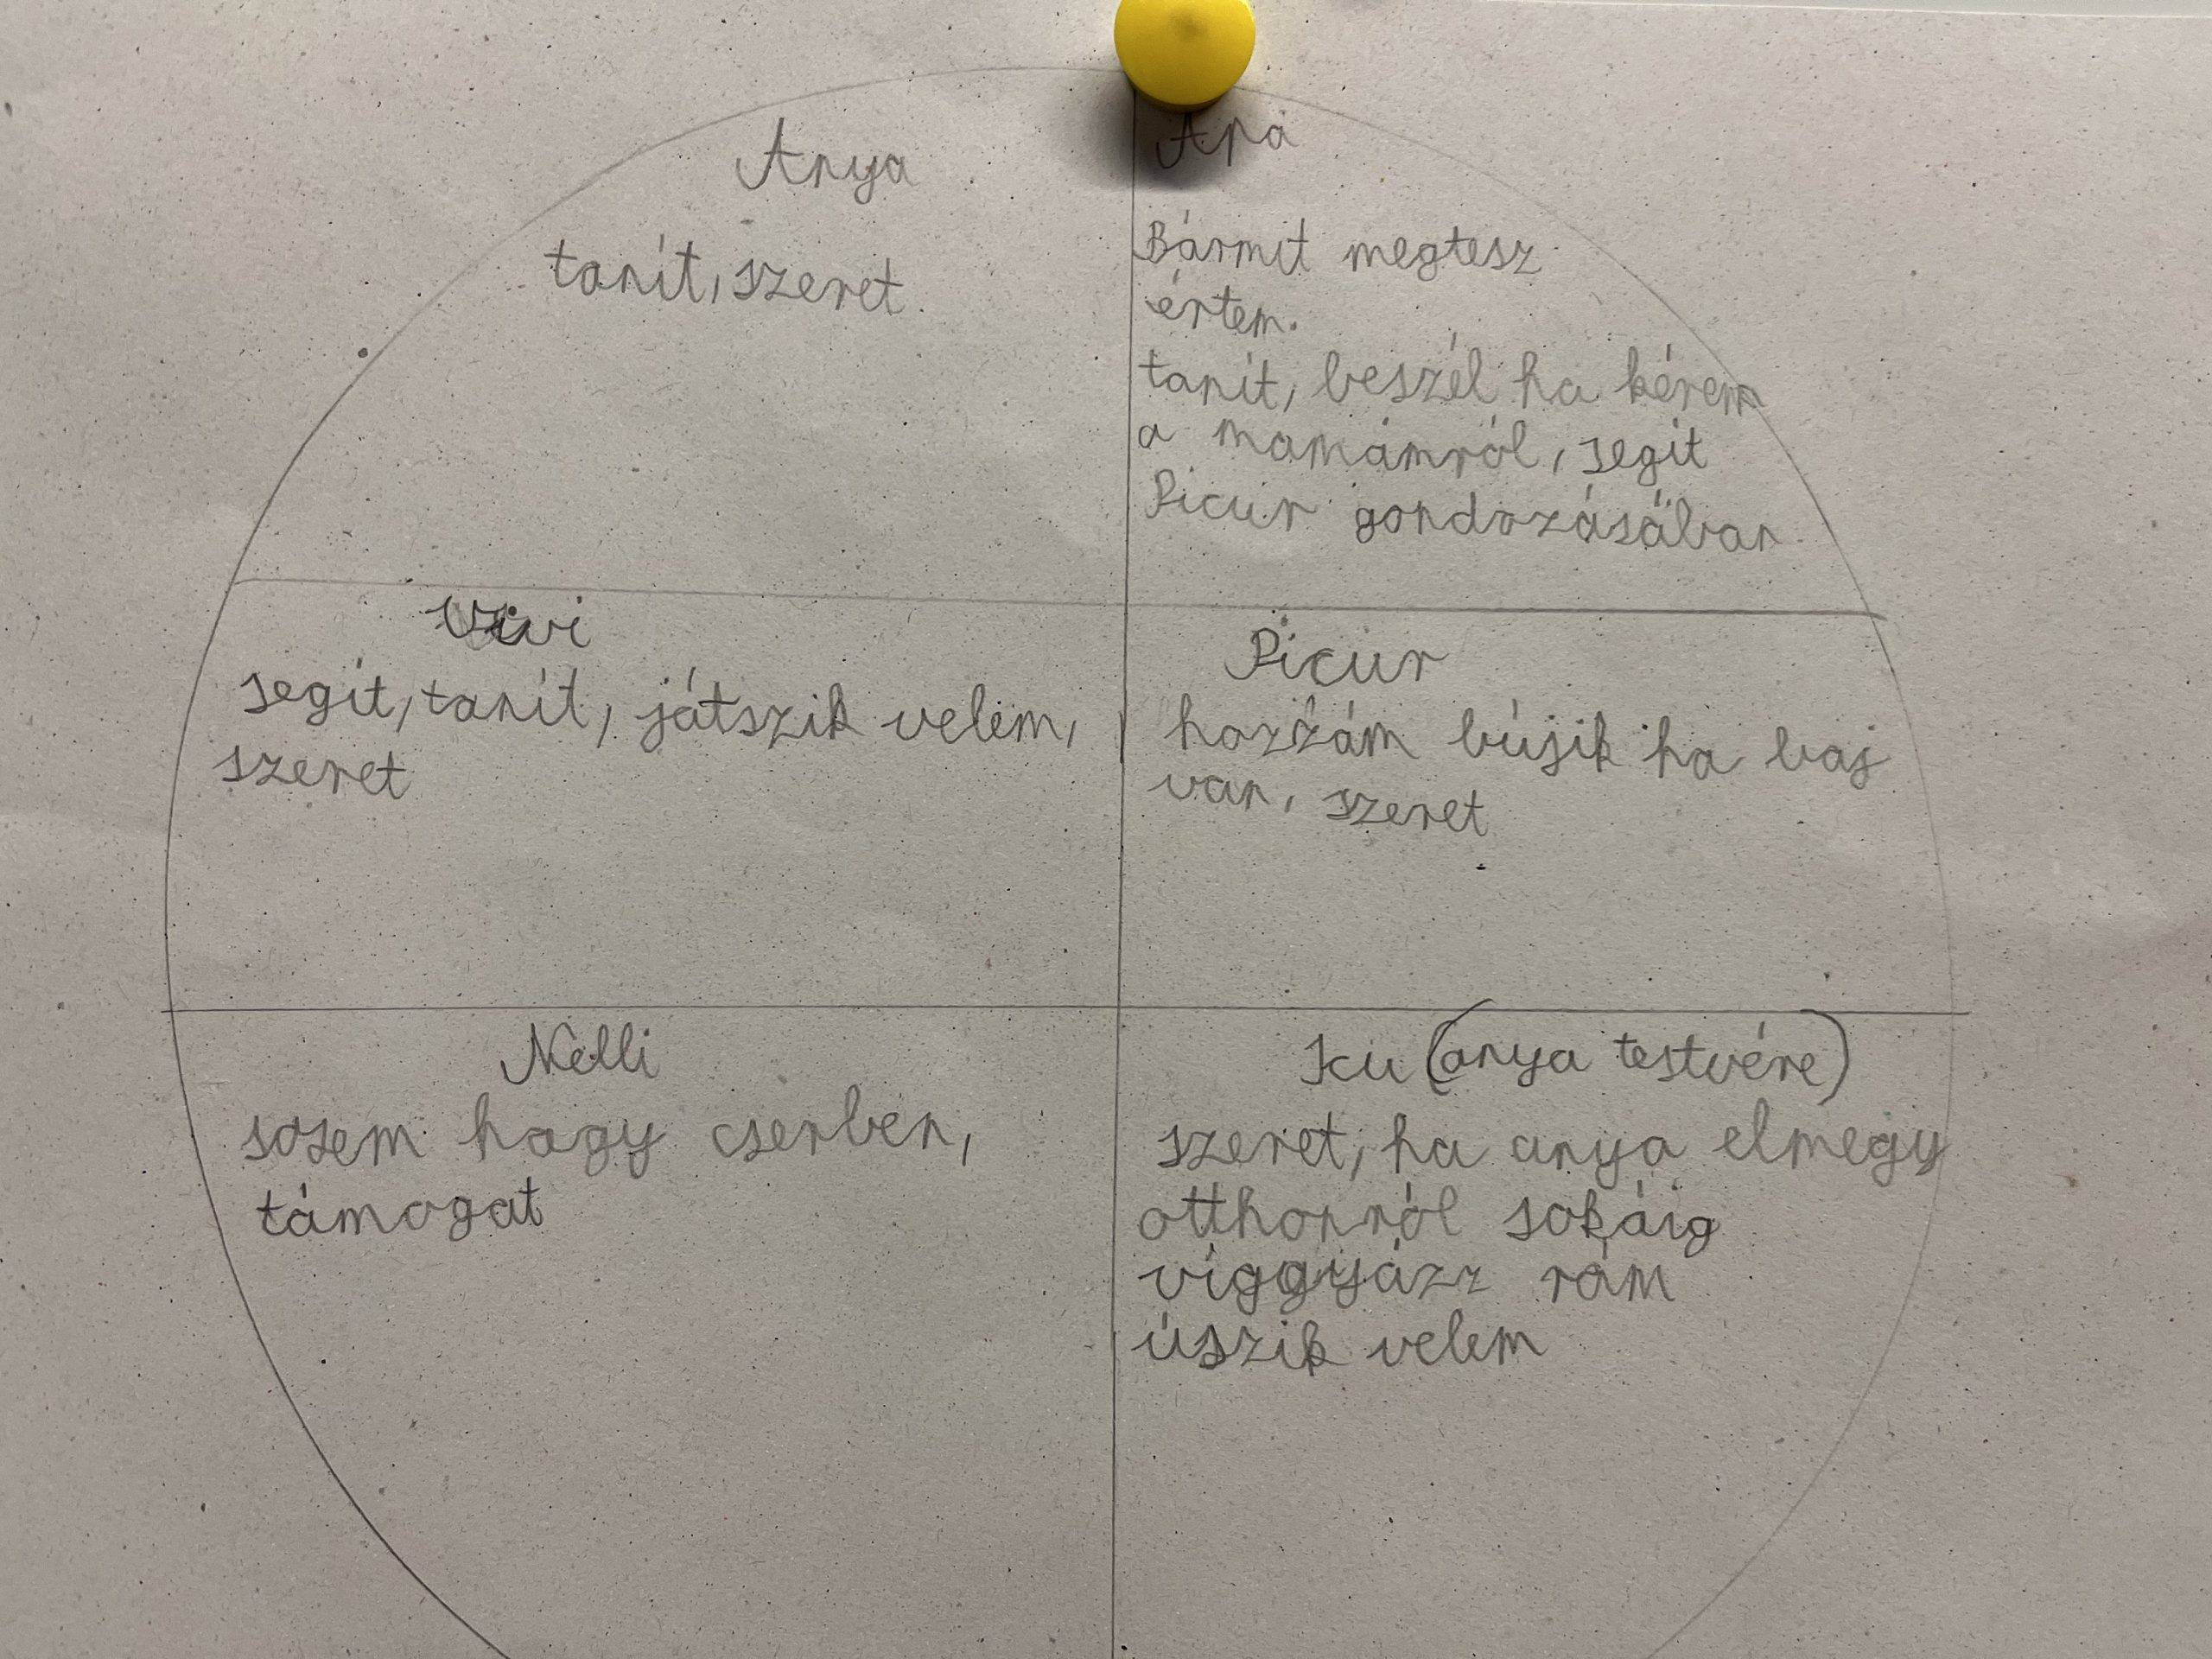 Anya
tanít, szeret.
Apa
Bármit megtesz
értem.
tanít, beszél ha kérem
a mamámról, segít
Picur gondozásában
Vivi
segít, tanít, játszik velem,
szeret
Picur
hozzám bújik ha baj
van, szeret
Nelli
sosem hagy cserben,
támogat
Icu (anya testvére)
szeret, ha anya elmegy
otthonról sokáig
viggyázz rám
úszik velem